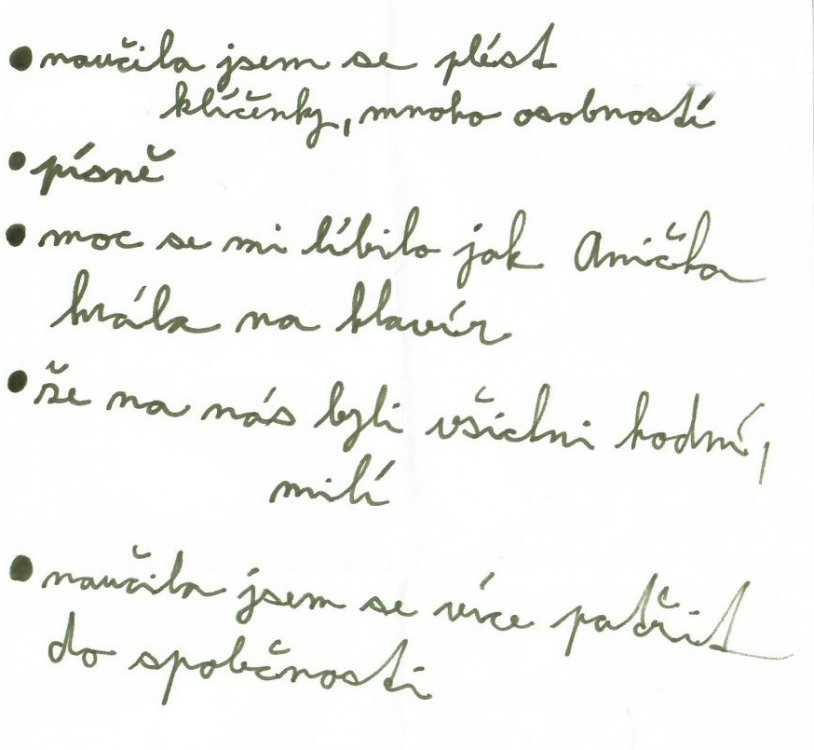 • naučila jsem se plést
klíčenky, mnoho osobností
• písně
• moc se mi líbilo jak Anička
hrála na klavír
• že na nás byli všichni hodní,
milí
• naučila jsem se více patřit
do spolčnosti